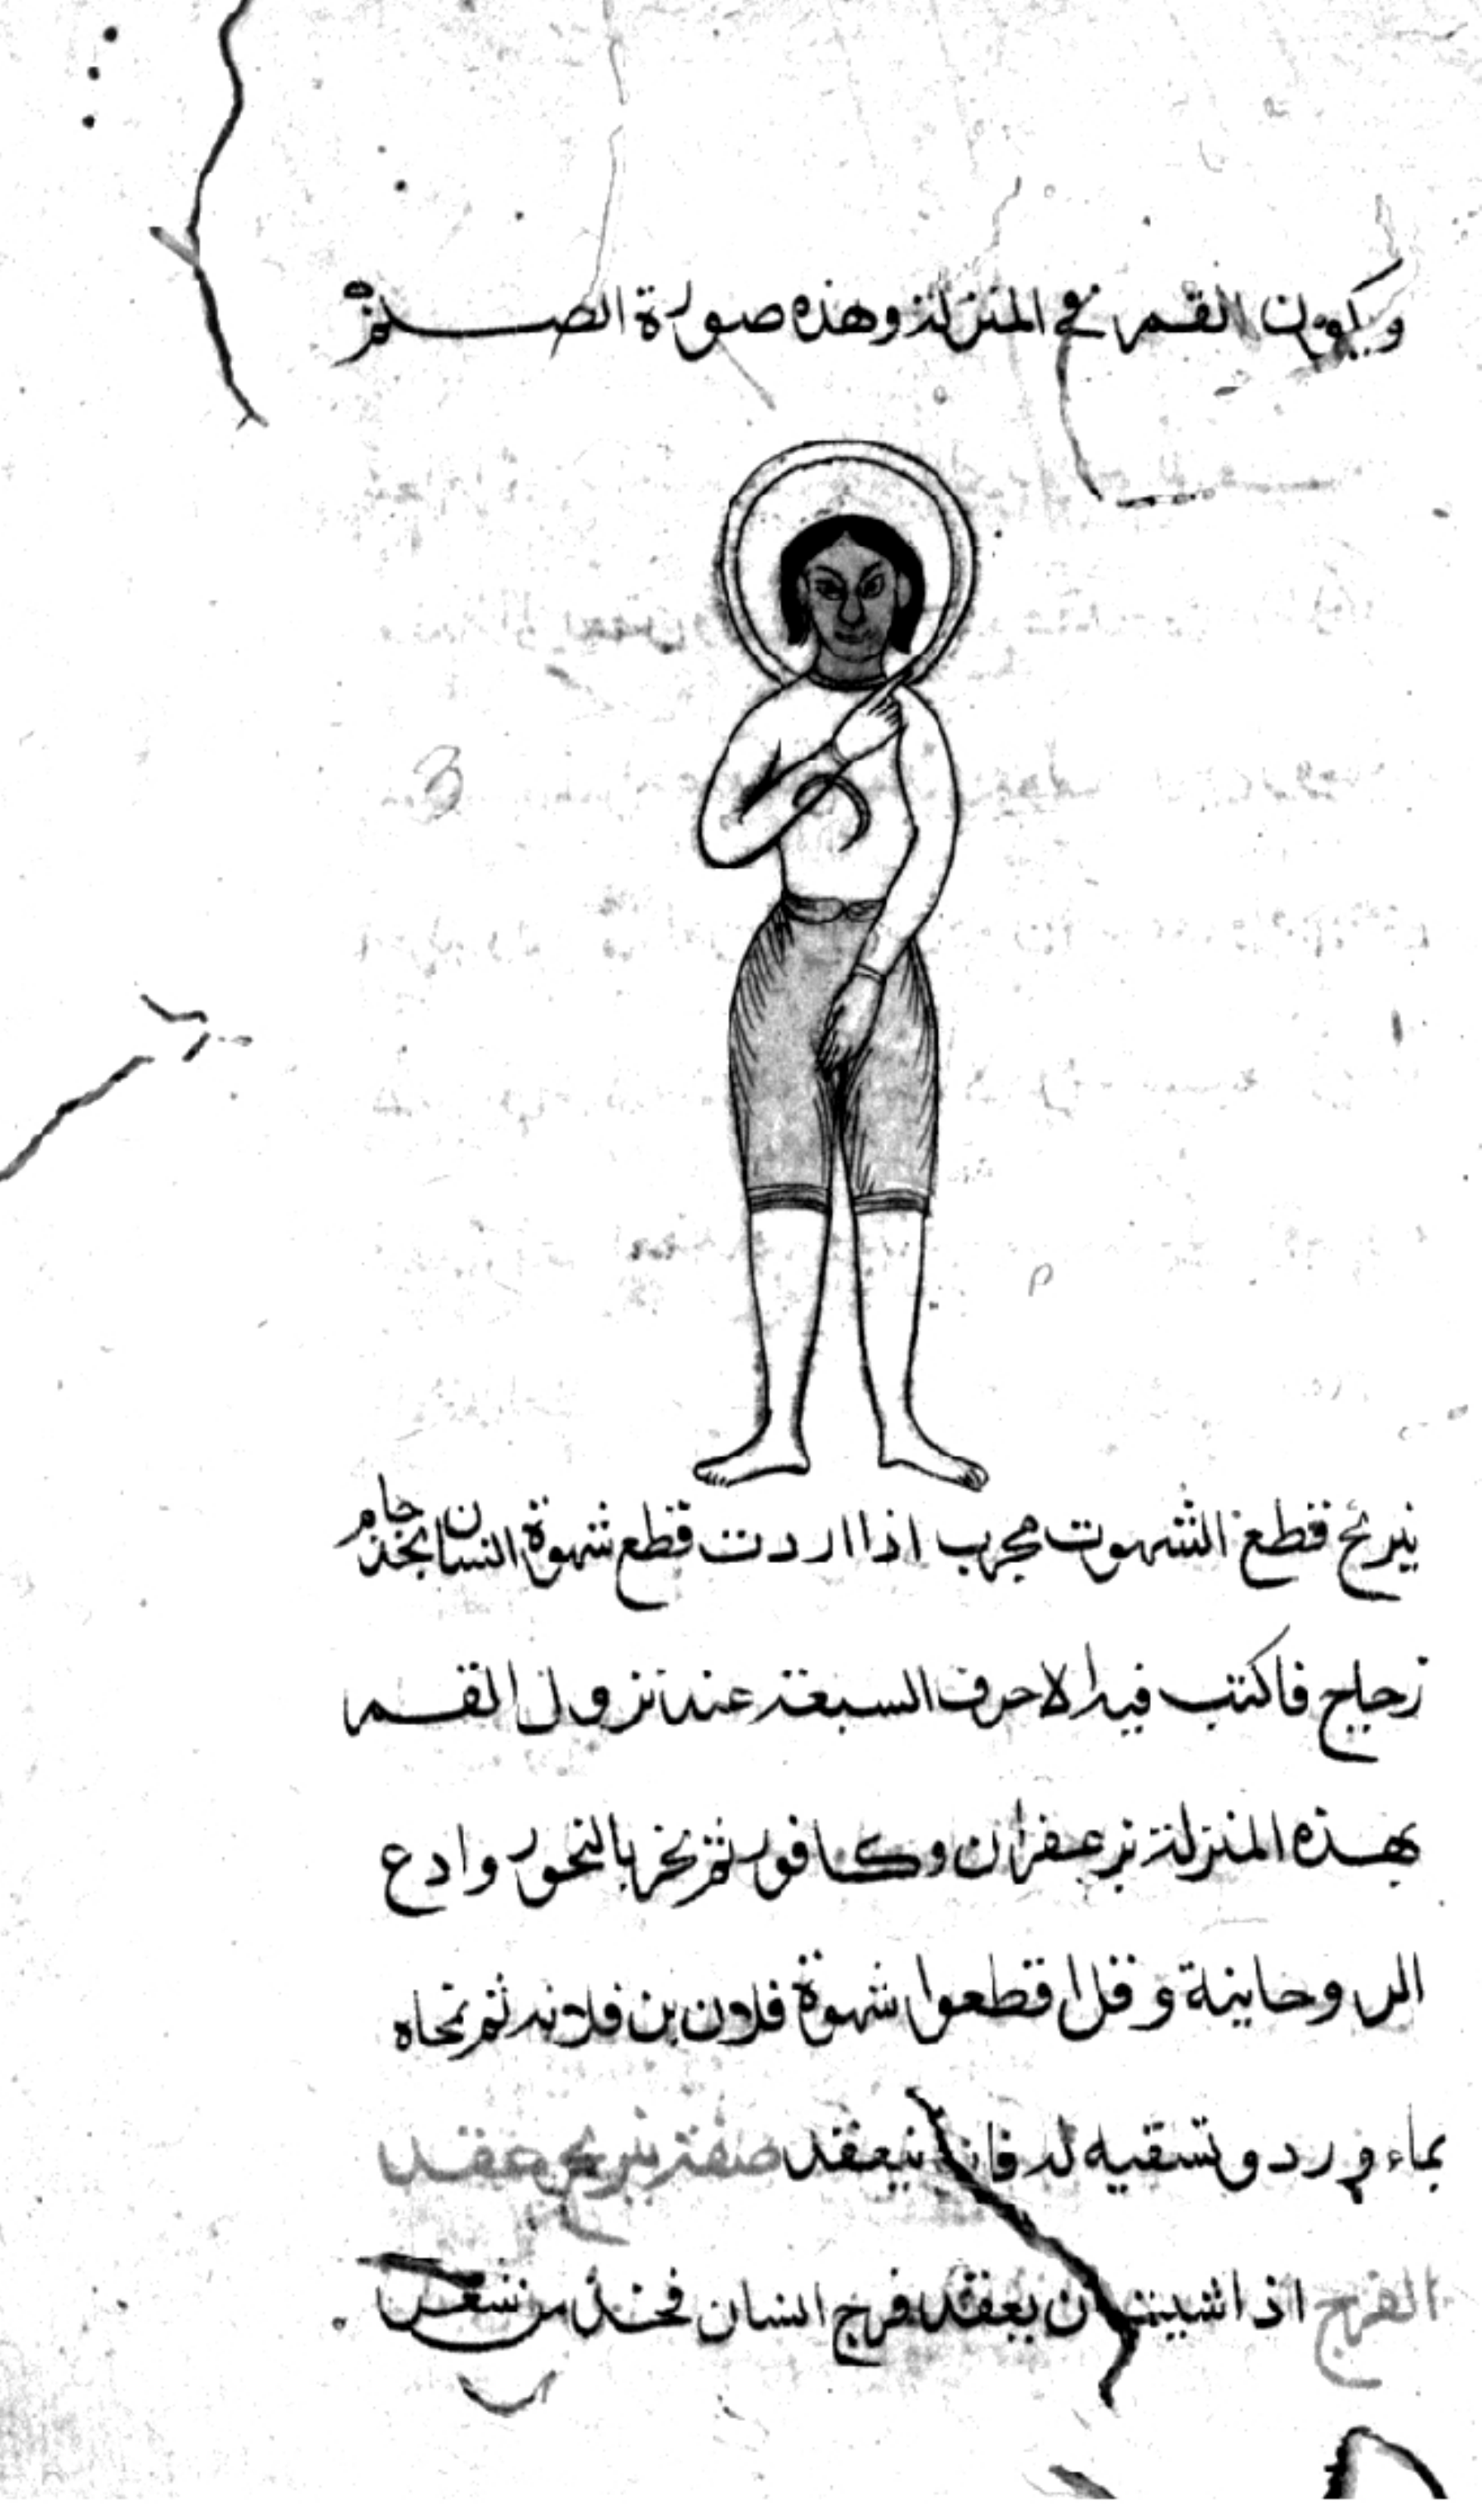 ويكون القمر في المنزلة وهذه صورة الصنم
نيرنج قطع الشهوت مجرب اذا اردت قطع شهوة انسان نخذ جام
زجاج فاكتب فيه الاحرف السبعة عند نزول القمر
بهذه المنزلة بزعفران وكافور ثم بخر بالبخور وادع
الروحانية وقل اقطعوا شهوة فلان بن فلانه ثم تمحاه
بماء ورد وتسقيه له فانه ينعقد صفة نيرنج عقد
الفرج اذا شيت ان يعقد فرج انسان فخذ من شعر